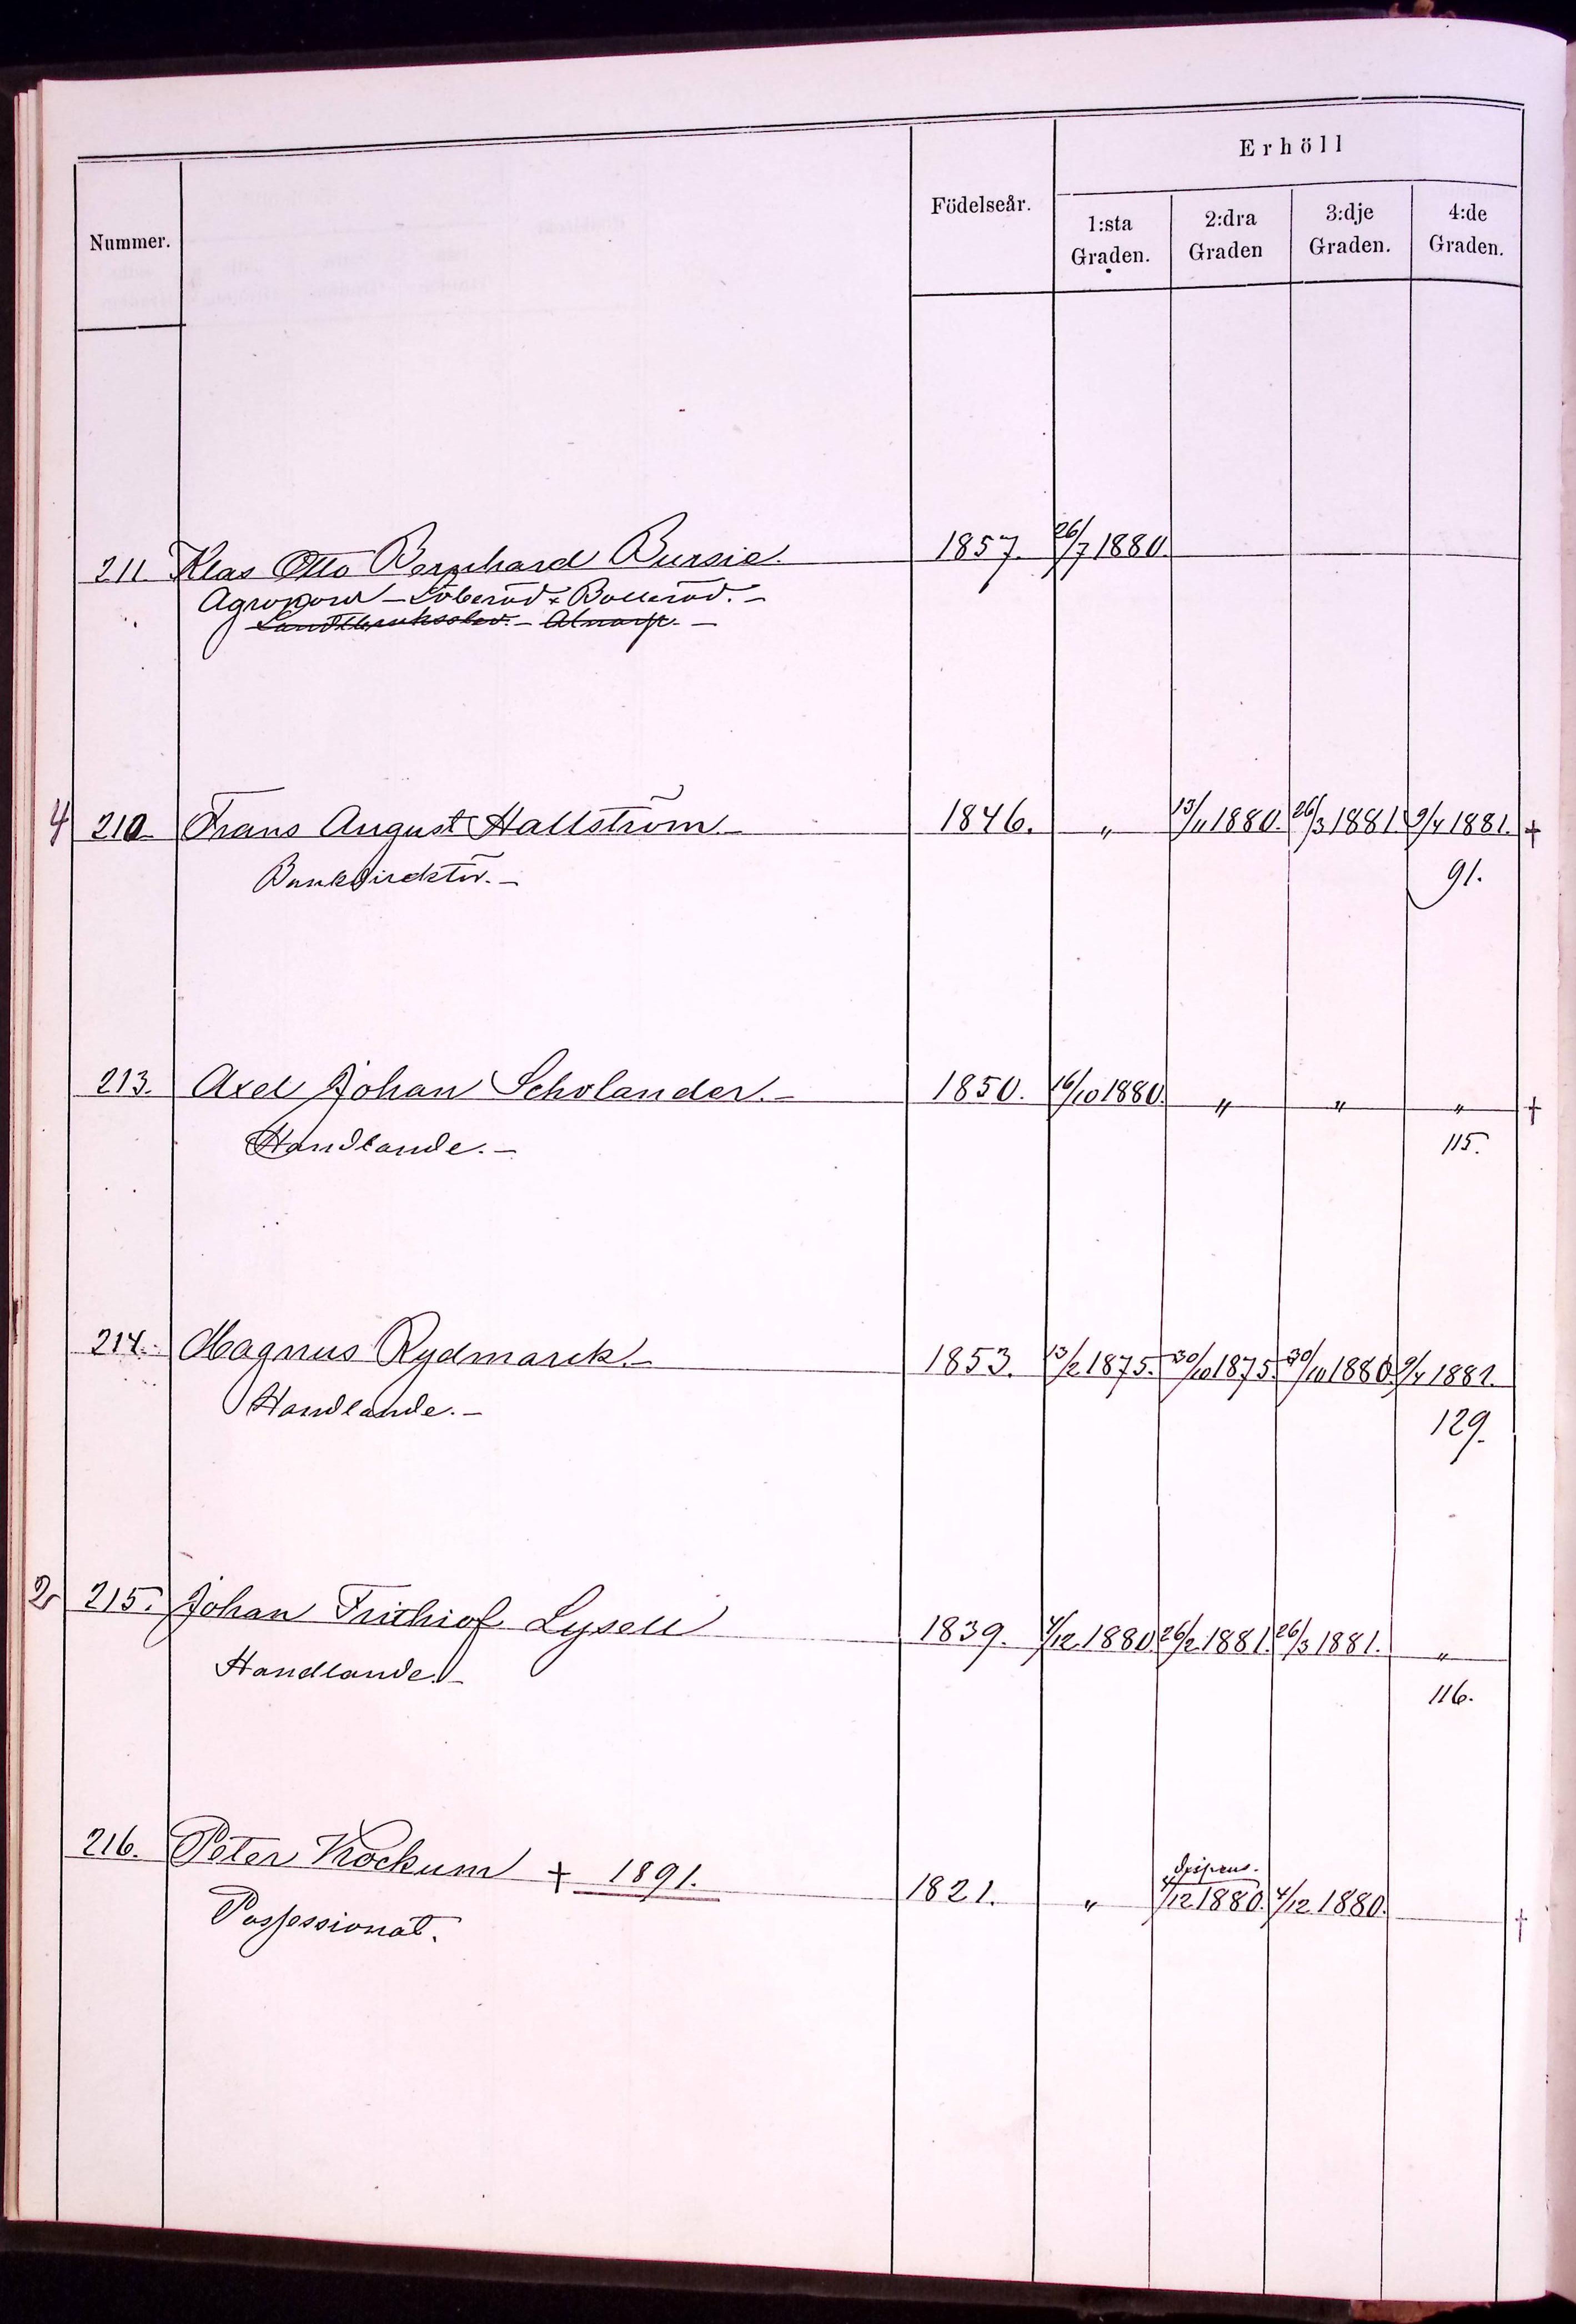 Nummer.
Födelseår.
Erhöll
1:sta Graden.
2:dra Graden
3:dje Graden.
4:de Graden.
211. Klas Otto Bernhard Bursie. 1857. 26/7 1880.
Agronom – Löberöd & Bolleröd. –
Landtbrukselev. – Alnarp. –
4 212. Frans August Hallström. – 1846. " 13/11 1880. 26/3 1881. 9/4 1881. †
Bankdirektör. – 91.
213. Axel Johan Scholander. – 1850. 16/10 1880. " " " †
Handlande. – 115.
214. Magnus Rydmarck. – 1853. 13/2 1875. 30/10 1875. 30/10 1880. 9/4 1881.
Handlande. – 129.
2 215. Johan Frithiof Lysell 1839. 4/12 1880. 26/2 1881. 26/3 1881. "
Handlande. – 116.
dispens.
216. Peter Kockum † 1891. 1821. " 4/12 1880. 4/12 1880. †
Possessionat.